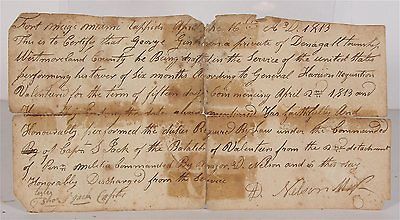 Fort Meigs miami Rappids April the 16th AD 1813
This is to Certify that George a private of township
Westmoreland County he Being draft in the Service of the united States
performing his tower of Six months According to General Harison Requisition
Valenteire for the term of fifteen days Commencing April 2nd 1813 and
the date above mentioned Has faithfully And
Honourably performed the duties Required By Law under the Commanded
of Capn of the Batalion of Valenteirs from the 2nd detachment
of Penn militia Commanded By Major D. Nelson and is this day
Honourably Discharged from the Service
D. Nelson Maj.
Capt